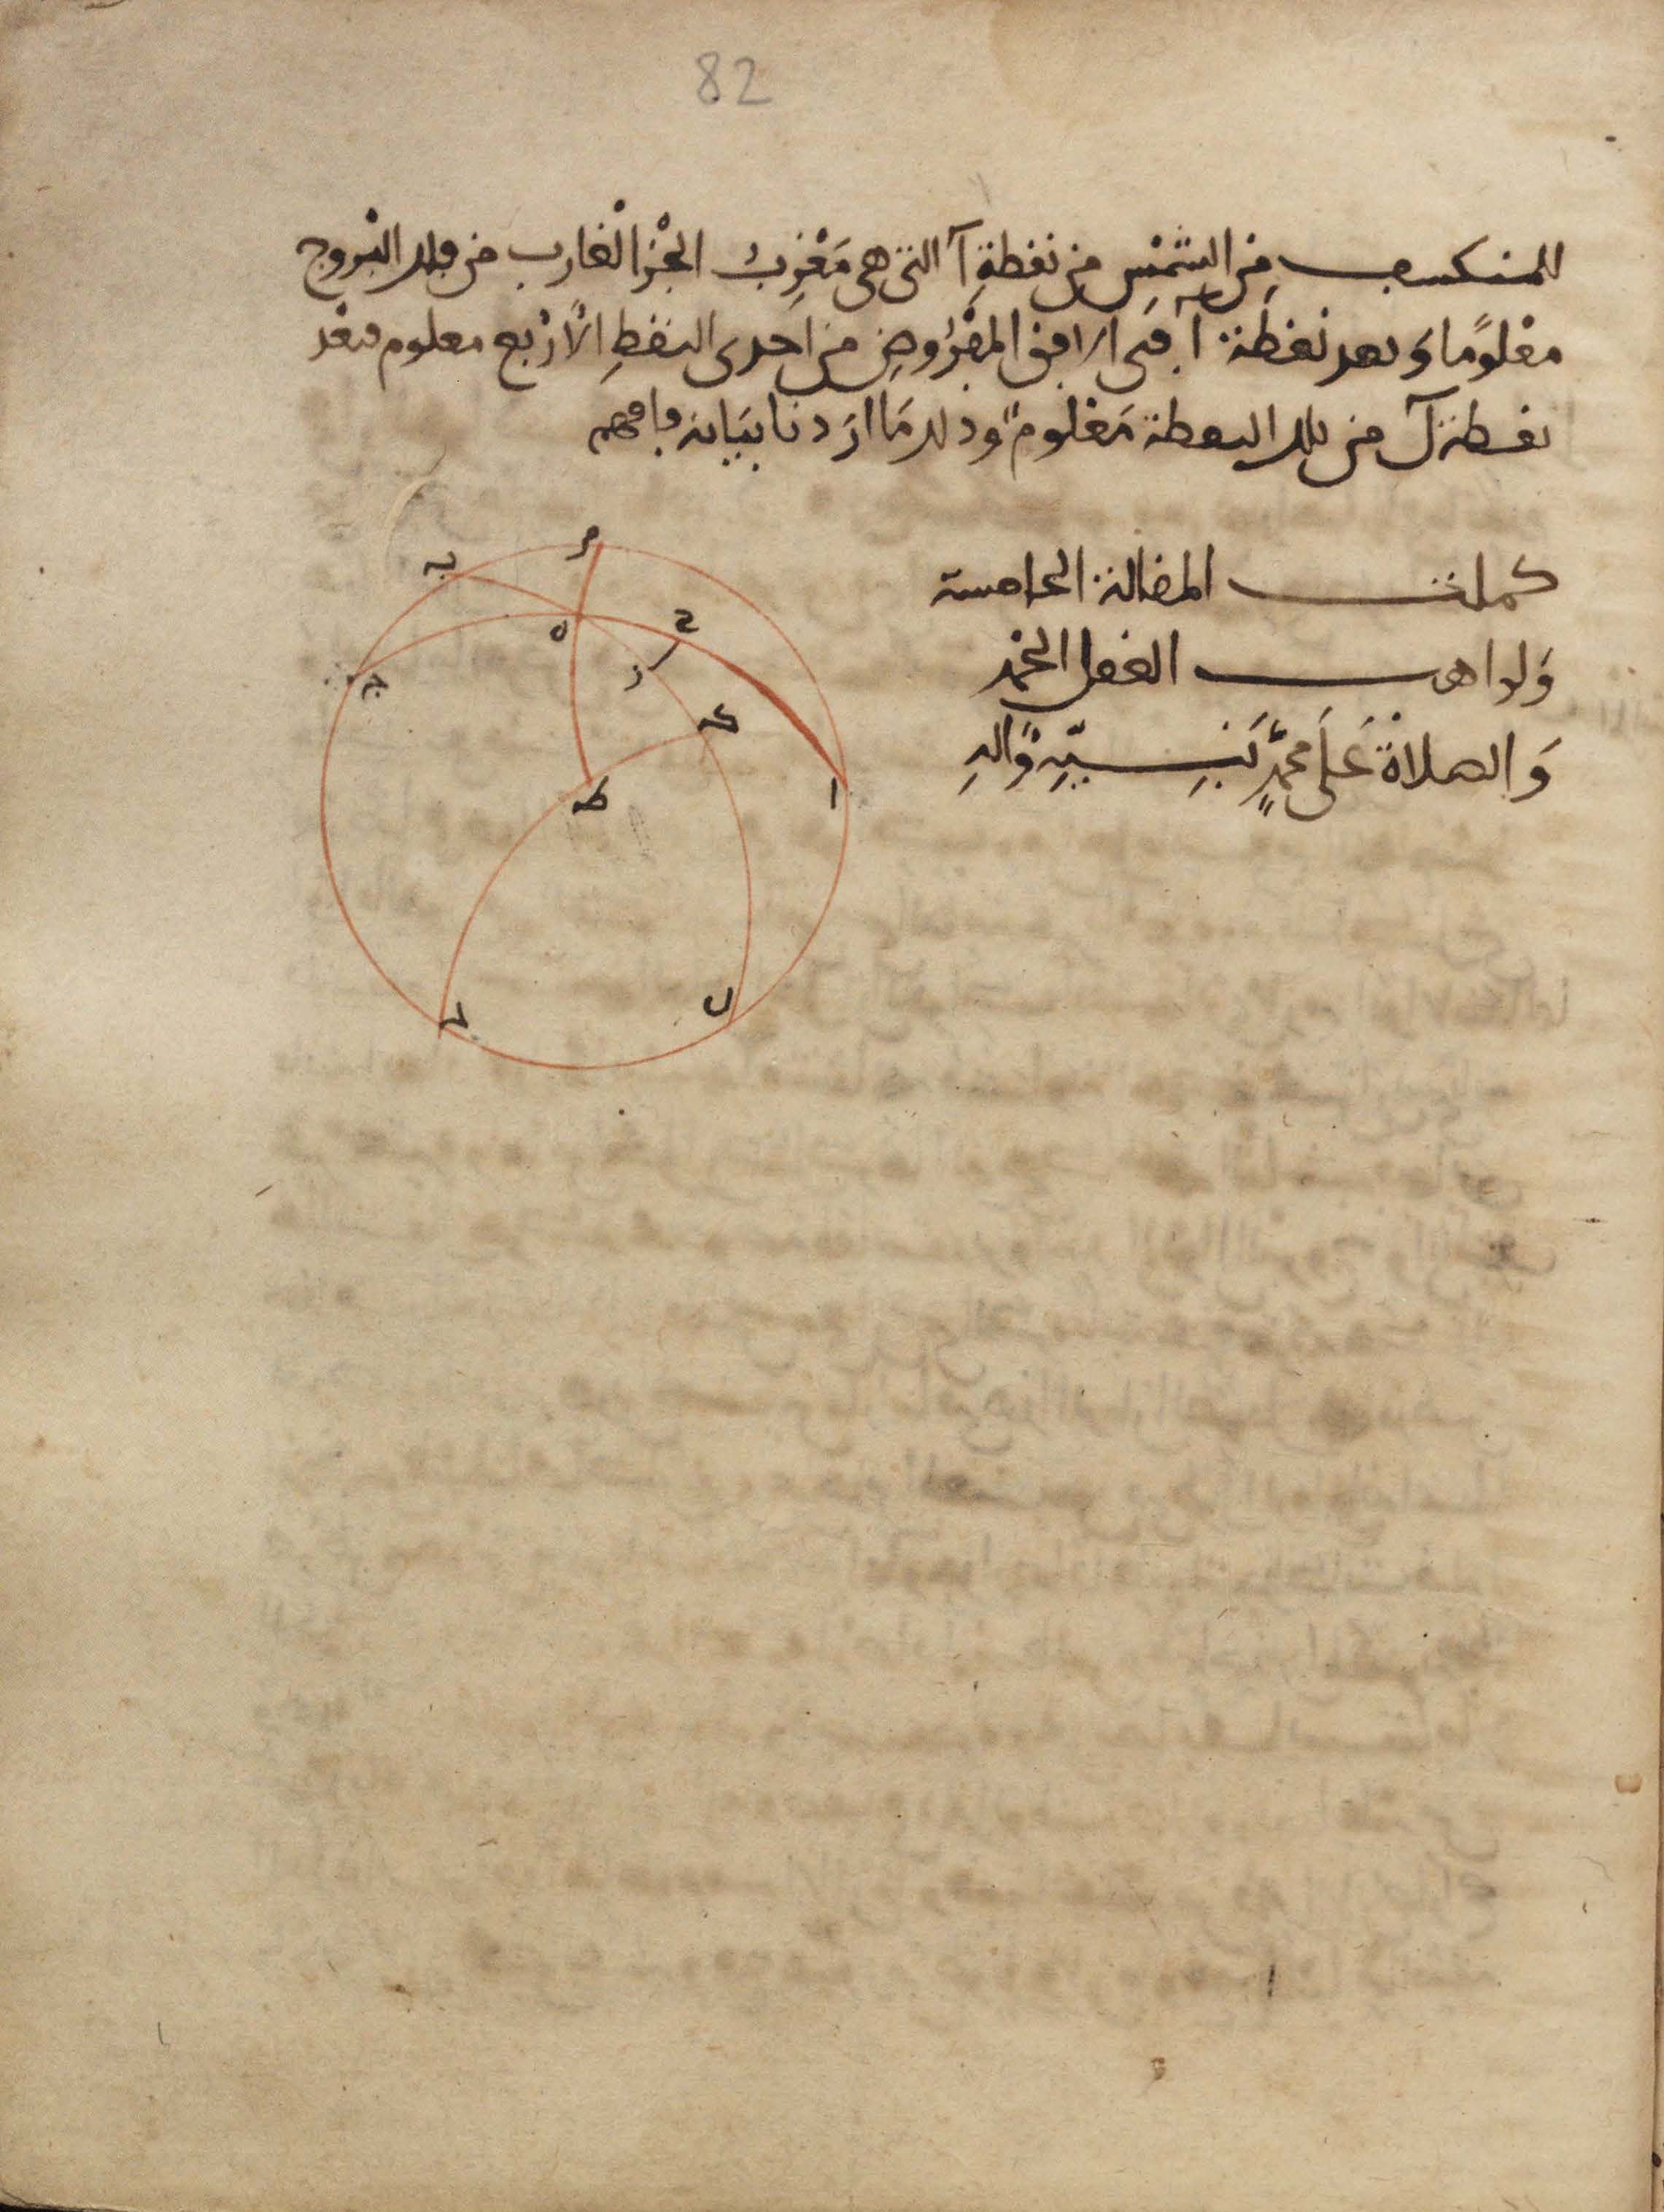 82
للمنكسف من الشمس من نقطة آ التى هى مَغْرِبُ الجزْ الغارب من فلك البروج
معْلومًا وَبعد نقطة آ فى الافق المفْرُوضِ من احدى النقطِ الأرْبع معلوم فبعْد
نقطة ل من تلك النقطة مَعْلوم وذلك مَا ارَدنا بَيَانه فافهم
م
ب
ح
ه
ج
ز
ك
ط
ا
ل
د
كملت المقالة الخامسة
وَلواهب العقل الحمْد
وَالصلاة عَلَى محمّدٍ نَبِيّهِ وَالهِ